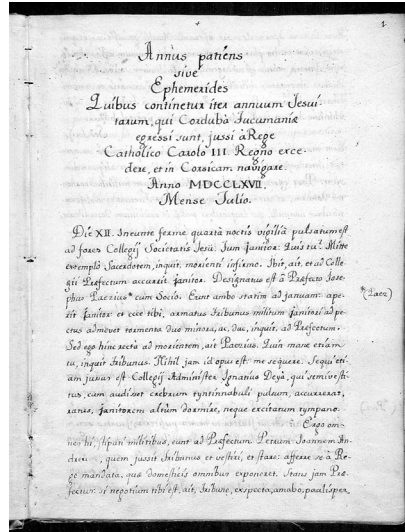 1
Annus patiens
sive
Ephemerides
Quibus continetur iter annuum Jesui
tarum, qui Cordubâ Tucumaniæ
egressi sunt, jussi à Rege
Catholico Carolo III. Regno exce-
dere, et in Corsicam navigare.
Anno MDCCLXVII.
Mense Julio.
Die XII. Ineunte ferme quartâ noctis vigiliâ pulsatum est
ad fores Collegij Societatis Jesu. Tum Janitor: Quis tu? Mitte
extemplò Sacerdotem, inquit, morienti infirmo. Ibit, ait, et ad Colle-
gii Præfectum accurrit Janitor. Designatus est à Præfecto Jose-
phus Paezius cum Socio. Eunt ambo statim ad januam: ape-
Paez
rit Janitor et ecce tibi, armatus Tribunus militum Janitori ad pe-
ctus admovet tormenta duo minora, ac, duc, inquit, ad Præfectum.
Sed ego hinc rectà ad morientem, ait Paezius. Quin mane etiam
tu, inquit Tribunus. Nihil jam id opus est: me sequere. Sequi eti-
am jussus est Collegij Administer Ignatius Deyà, qui semivesti-
tus, cum audisset crebrum tyntinnabuli pulsum, accurrerat,
ratus, Janitorem altùm dormire, neque excitatum tympano.
Ergo om-
nes hi, stipati militibus, eunt ad Præfectum Petrum Joannem An-
dreu, quem jussit Tribunus et vestiri, et stare: afferre se à Re-
ge mandata, quæ domesticis omnibus exponeret. Stans jam Præ-
fectus: si negotium tibi est, ait, Tribune, exspecta, amabo, paulisper,